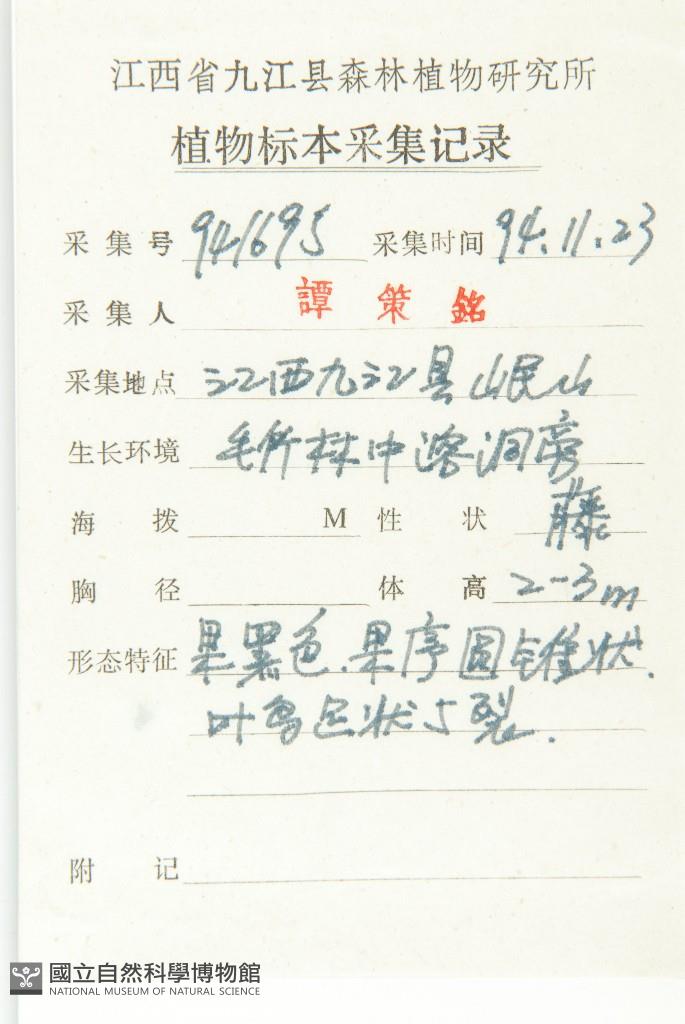 江西省九江县森林植物研究所
植物标本采集记录
采集号 941695 采集时间 94.11.23
采集人 譚策銘
采集地点 江西九江县岷山
生长环境 毛竹林中溶洞旁
海拨 M 性状 藤
胸径 体高 2-3m
形态特征 果黑色、果序圆锥状、
叶鸟足状5裂.
附记
國立自然科學博物館
NATIONAL MUSEUM OF NATURAL SCIENCE